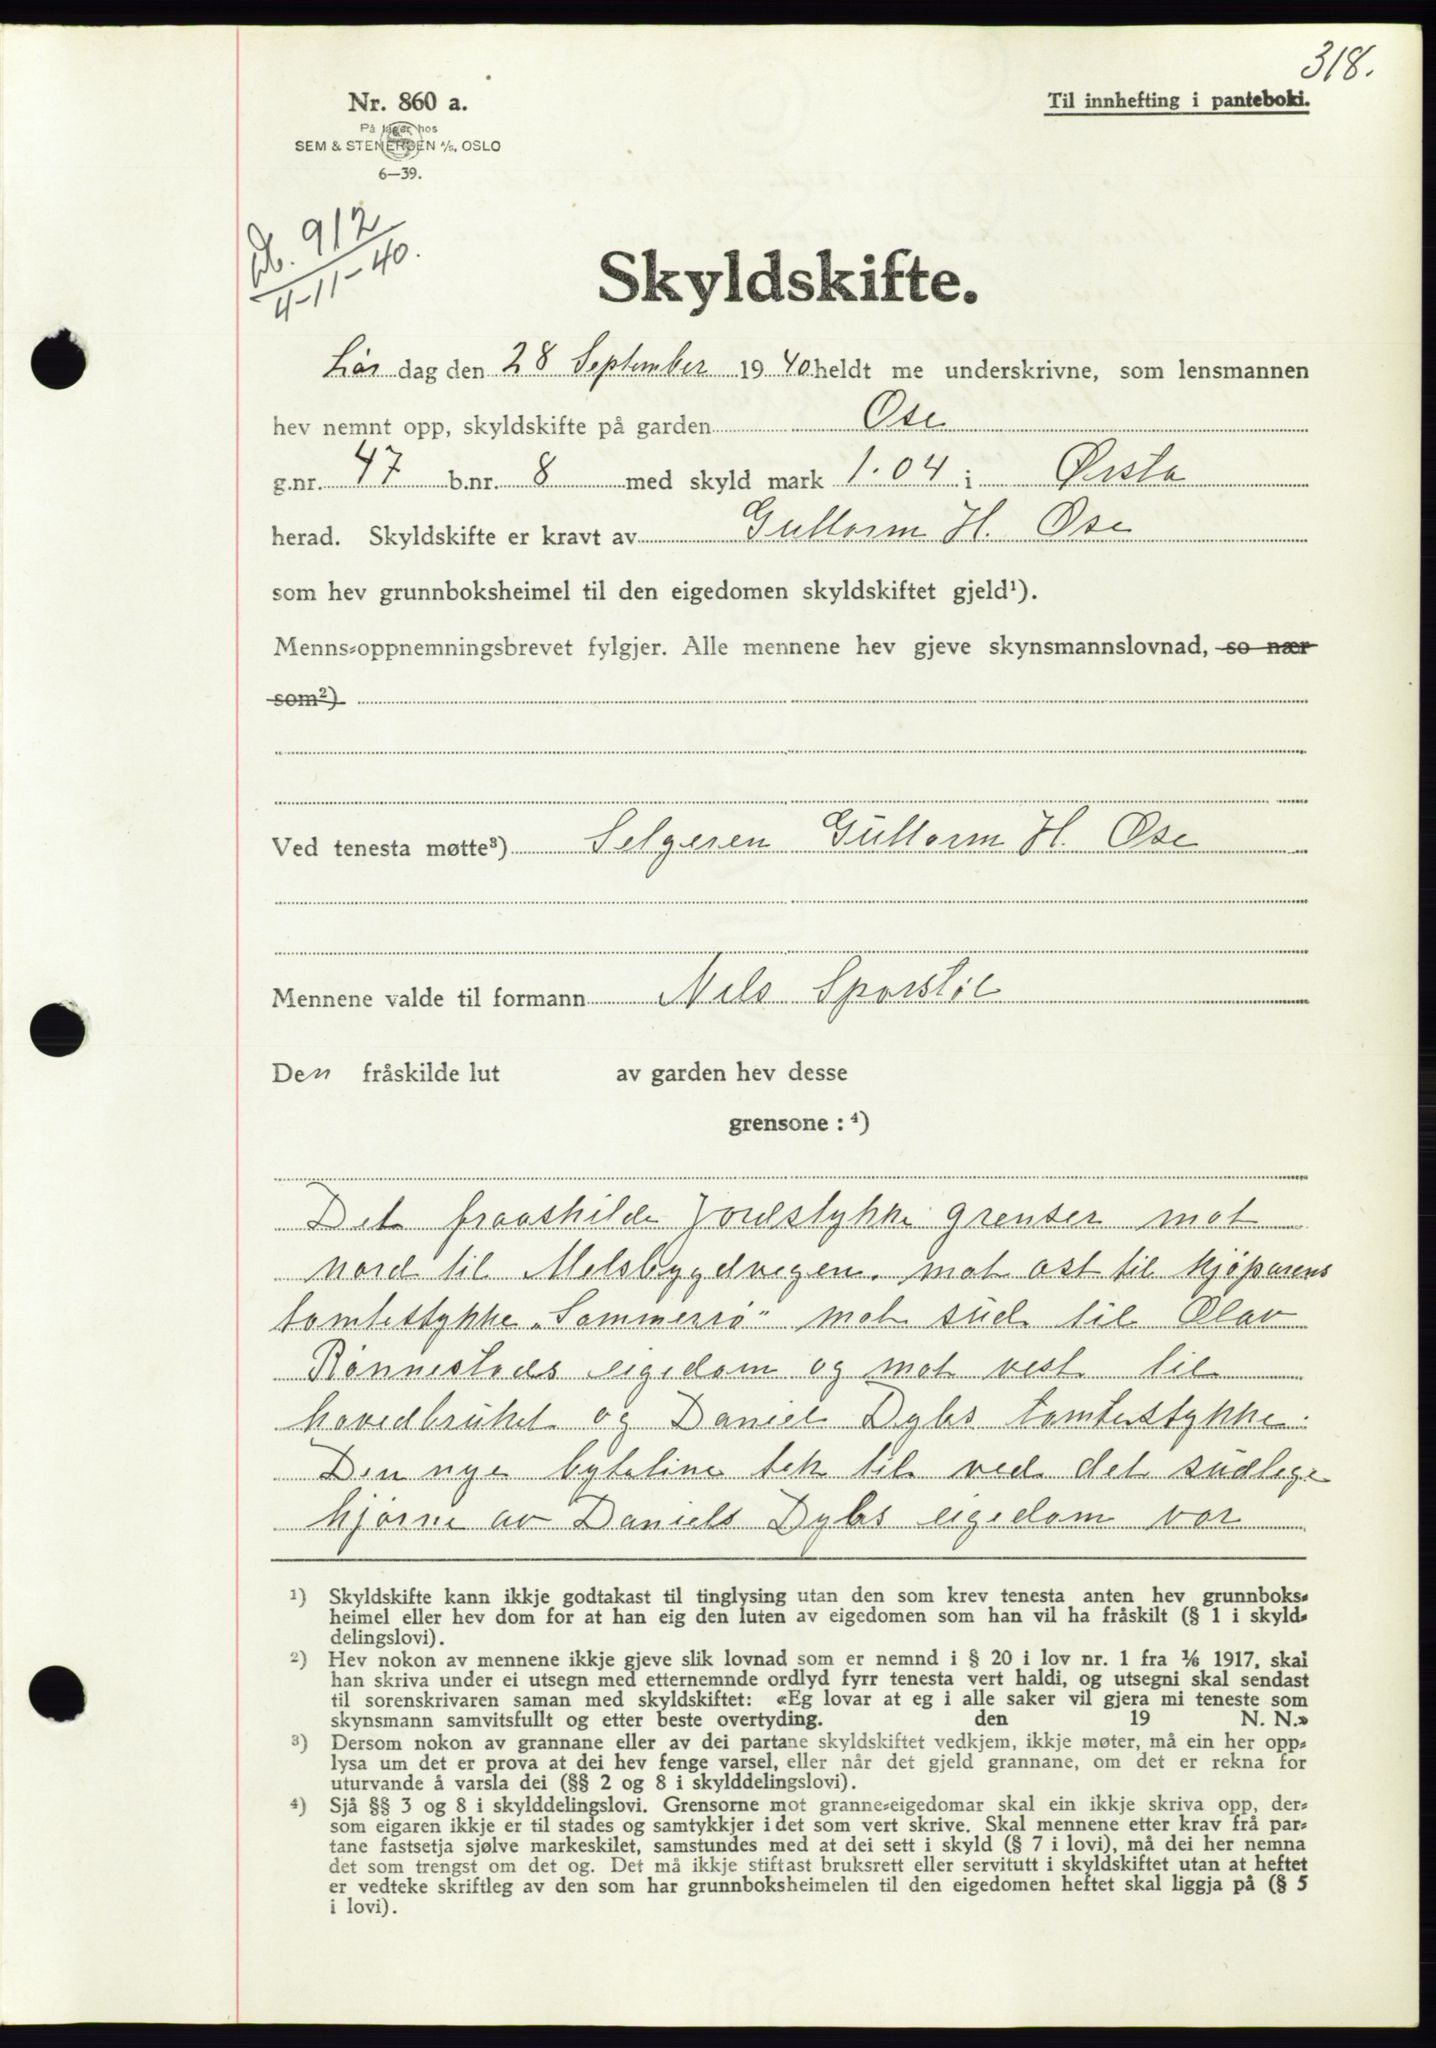 318.
Nr. 860 a.
Til innhefting i panteboki.
På lager hos
SEM & STENERSEN A/S, OSLO
6—39.
Db. 912
4-11-40.
Skyldskifte.
Lör dag den 28 September 1940 heldt me underskrivne, som lensmannen
hev nemnt opp, skyldskifte på garden Ose
g.nr. 47 b.nr. 8 med skyld mark 1.04 i Ørsta
herad. Skyldskifte er kravt av Guttorm H. Ose
som hev grunnboksheimel til den eigedomen skyldskiftet gjeld¹).
Menns-oppnemningsbrevet fylgjer. Alle mennene hev gjeve skynsmannslovnad, so nær
som²)
Ved tenesta møtte³) Selgeren Guttorm H. Ose
Mennene valde til formann Nils Sporstöl
Den fråskilde lut av garden hev desse
grensone : ⁴)
Det fraaskilde jordstykke grenser mot
nord til Melsbygdvegen. mot ost til kjöparens
tomtestykke „Sommerro" mot süd til Olav
Rönnestads eigedom og mot vest til
hovedbruket og Daniel Dybs tomtestykke.
Den nye bytaline tek til ved det südlege
hjörne av Daniels Dybs eigedom vor
¹) Skyldskifte kann ikkje godtakast til tinglysing utan den som krev tenesta anten hev grunnboks-
heimel eller hev dom for at han eig den luten av eigedomen som han vil ha fråskilt (§ 1 i skyld-
delingslovi).
²) Hev nokon av mennene ikkje gjeve slik lovnad som er nemnd i § 20 i lov nr. 1 fra ⅙ 1917, skal
han skriva under ei utsegn med etternemnde ordlyd fyrr tenesta vert haldi, og utsegni skal sendast
til sorenskrivaren saman med skyldskiftet: «Eg lovar at eg i alle saker vil gjera mi teneste som
skynsmann samvitsfullt og etter beste overtyding. den 19 N. N.»
³) Dersom nokon av grannane eller av dei partane skyldskiftet vedkjem, ikkje møter, må ein her opp-
lysa um det er prova at dei hev fenge varsel, eller når det gjeld grannane, om det er rekna for
uturvande å varsla dei (§§ 2 og 8 i skylddelingslovi).
⁴) Sjå §§ 3 og 8 i skylddelingslovi. Grensorne mot granne-eigedomar skal ein ikkje skriva opp, der-
som eigaren ikkje er til stades og samtykkjer i det som vert skrive. Skal mennene etter krav frå par-
tane fastsetja sjølve markeskilet, samstundes med at dei sett i skyld (§ 7 i lovi), må dei her nemna
det som trengst om det og. Det må ikkje stiftast bruksrett eller servitutt i skyldskiftet utan at heftet
er vedteke skriftleg av den som har grunnboksheimelen til den eigedomen heftet skal liggja på (§ 5
i lovi).